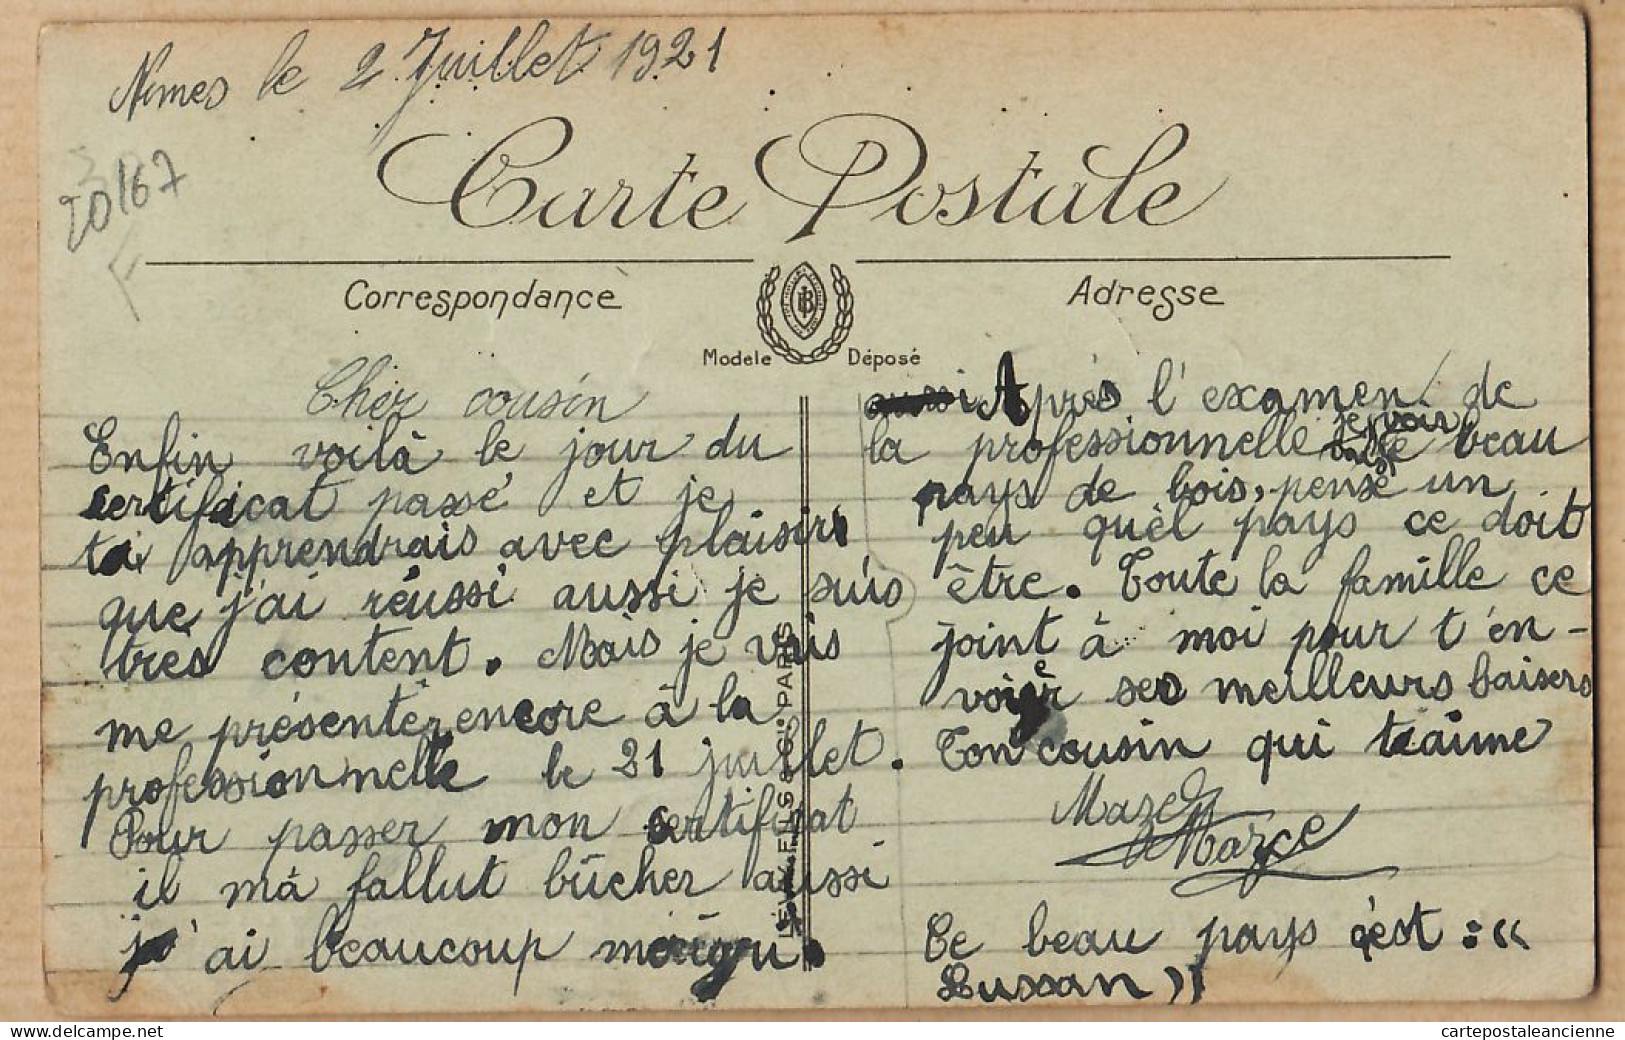 Nimes le 2 Juillet 1921
20167
Carte Postale
Correspondance
Adresse
Modele Déposé
Cher cousin
Enfin voilà le jour du
certificat passé et je
ta apprendrais avec plaisir
que j'ai réussi aussi je suis
très content. Mais je vais
me présenter encore à la
professionnelle le 21 juillet.
Pour passer mon certificat
il mà fallut bûcher aussi
j'ai beaucoup maigri.
LEVY FILS & Cie PARIS
Après l'examen de
la professionnelle je vais
le beau
pays de bois, pense un
peu quèl pays ce doit
être. Toute la famille ce
joint à moi pour t'en-
voier ses meilleurs baisers
Ton cousin qui t'aime
Ce beau pays c'est : «
Lussan »
delcampe.net
cartepostaleancienne